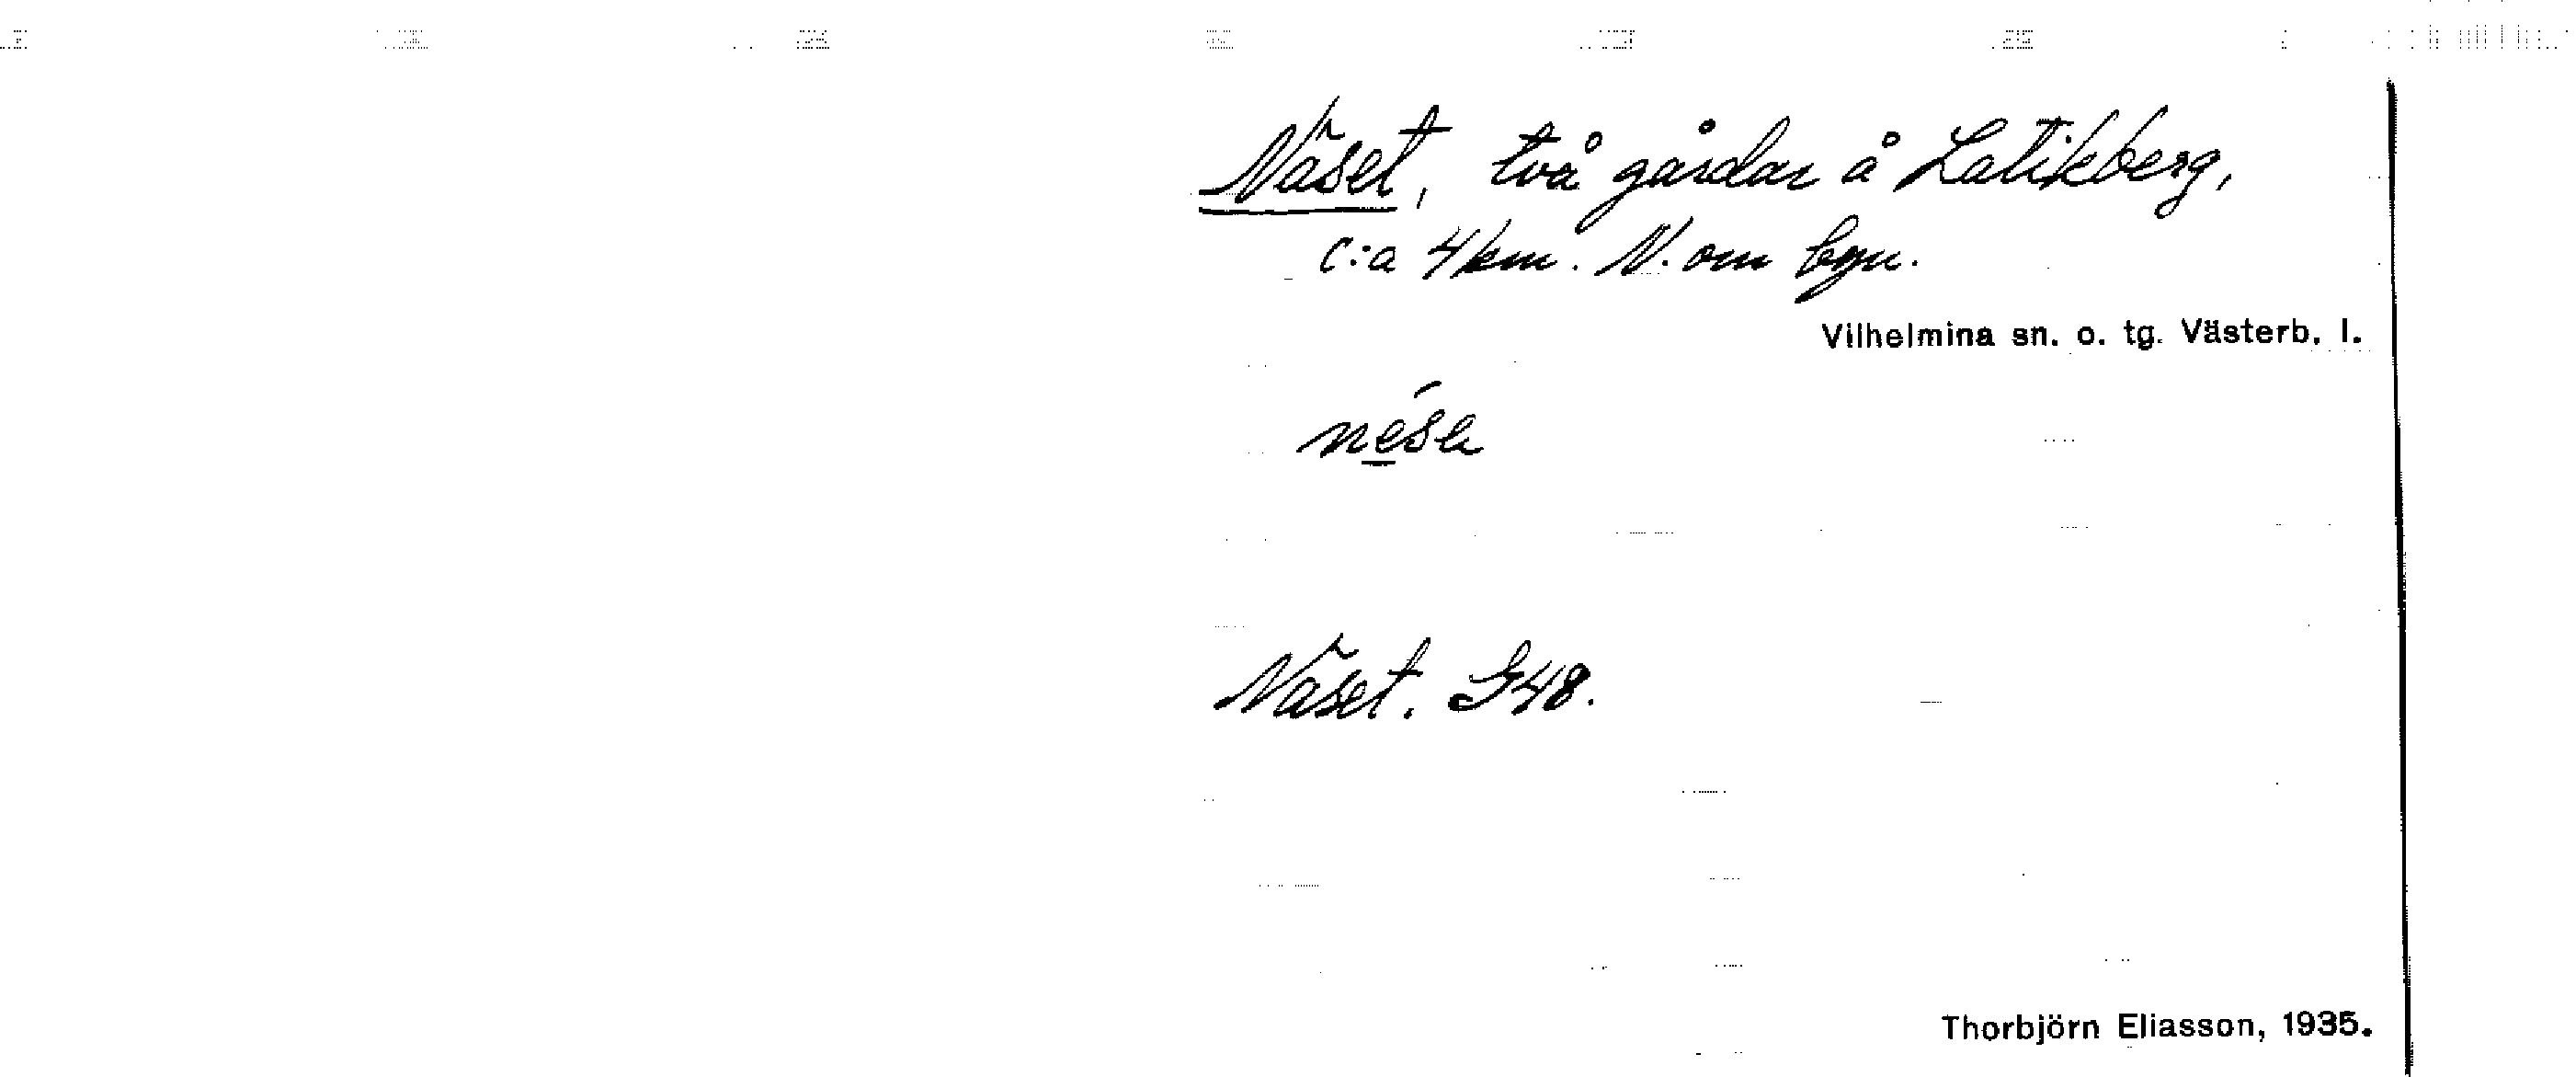 Näset, två gårdar å Latikberg,
c:a 4 km. N. om byn.
Vilhelmina sn. o. tg. Västerb. l.
Näset. G48.
Thorbjörn Eliasson, 1935.